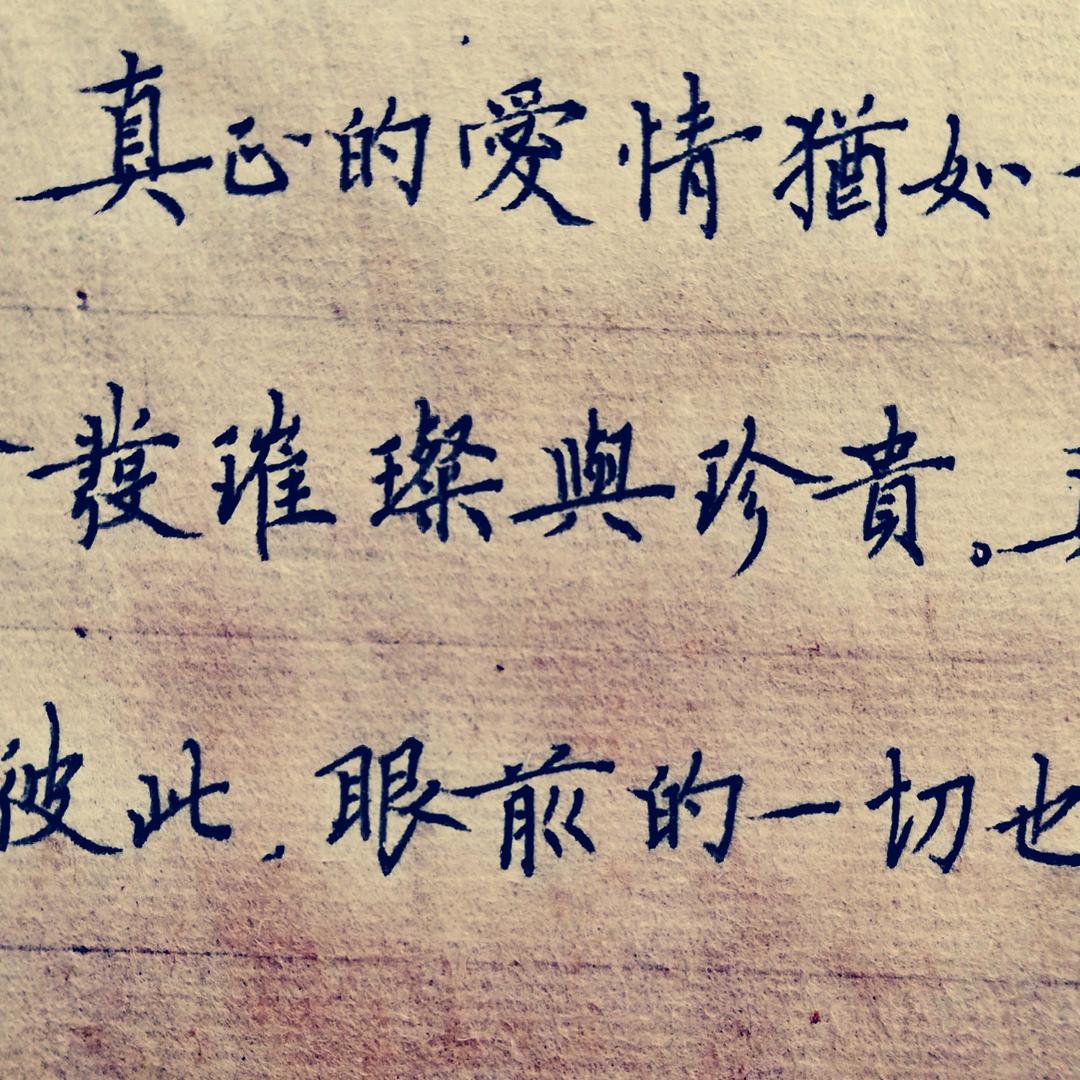 真正的愛情猶如
發璀璨與珍貴。
彼此,眼前的一切也